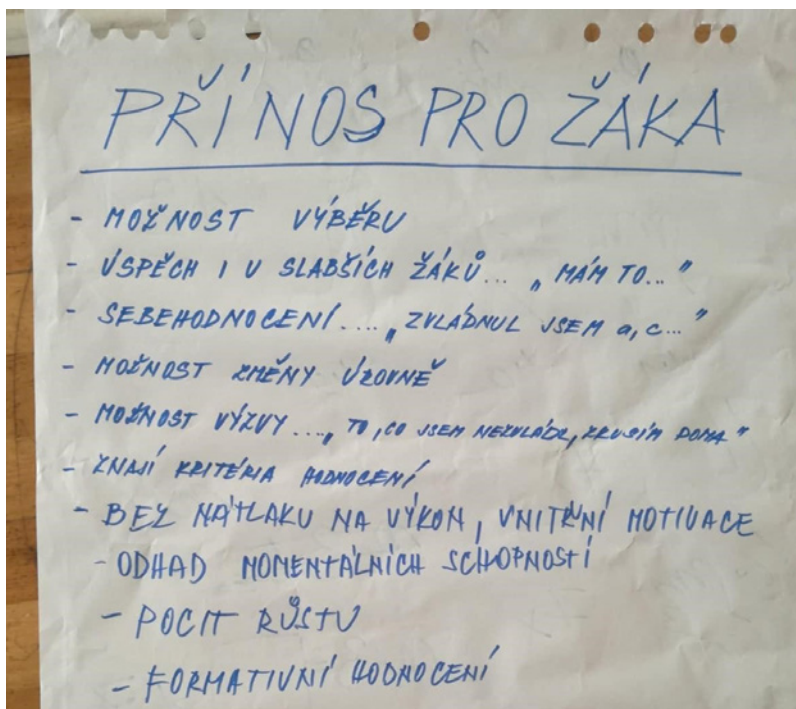 PŘÍNOS PRO ŽÁKA
- MOŽNOST VÝBĚRU
- ÚSPĚCH I U SLABŠÍCH ŽÁKŮ... „MÁM TO..."
- SEBEHODNOCENÍ....„ZVLÁDNUL JSEM a, c..."
- MOŽNOST ZMĚNY ÚROVNĚ
- MOŽNOST VÝZVY...„TO, CO JSEM NEZVLÁDL, ZKUSÍM DOMA"
- ZNAJÍ KRITÉRIA HODNOCENÍ
- BEZ NÁTLAKU NA VÝKON, VNITŘNÍ MOTIVACE
- ODHAD MOMENTÁLNÍCH SCHOPNOSTÍ
- POCIT RŮSTU
- FORMATIVNÍ HODNOCENÍ